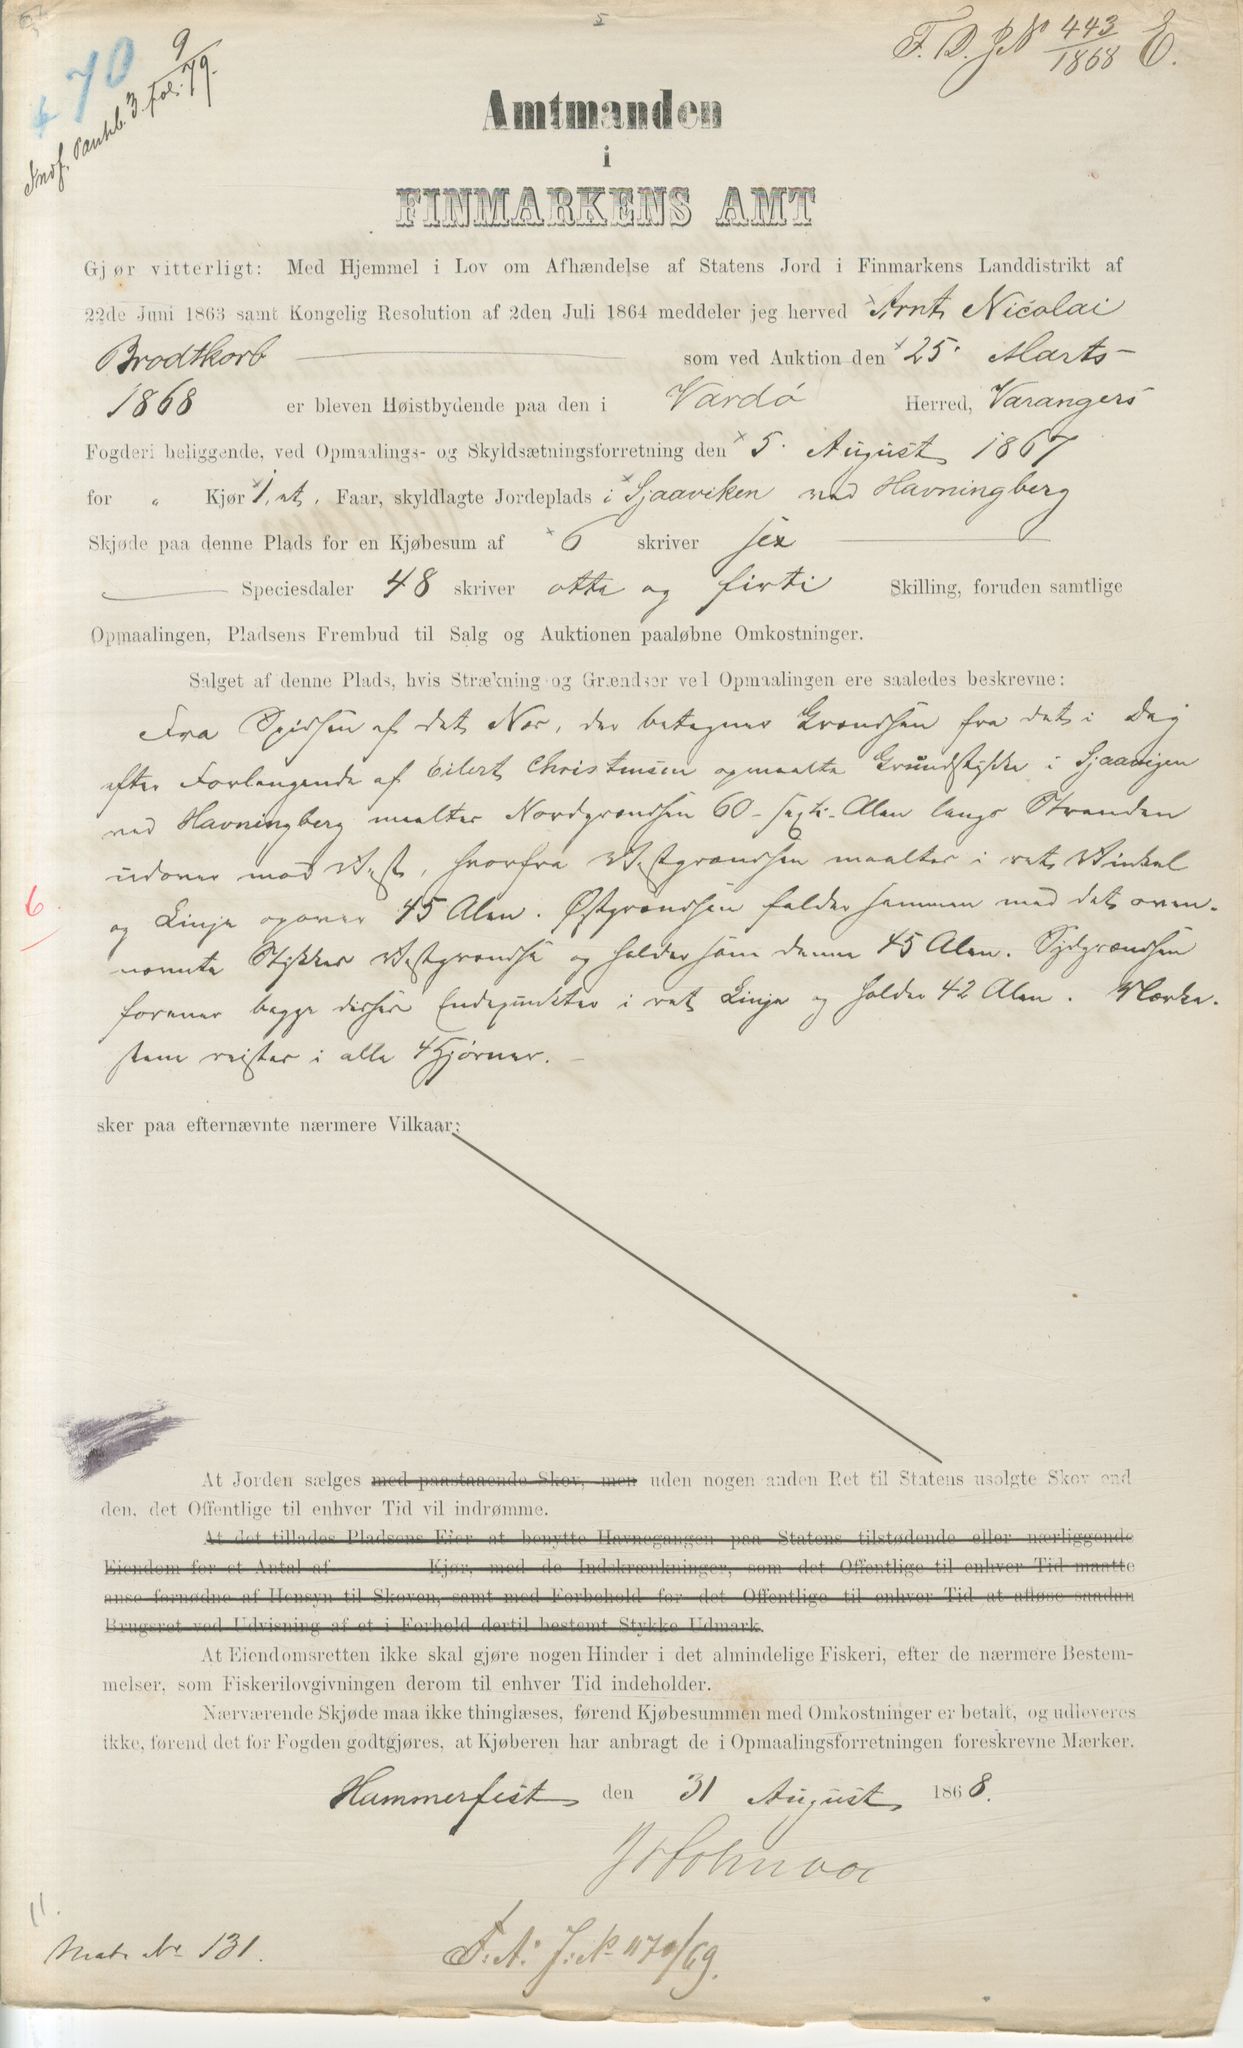 F. D. J N 443/1868 E.
70
9
Indf. Pantb. 3. fol: 79.
Amtmanden
i
FINMARKENS AMT
Gjør vitterligt: Med Hjemmel i Lov om Afhændelse af Statens Jord i Finmarkens Landdistrikt af
22de Juni 1863 samt Kongelig Resolution af 2den Juli 1864 meddeler jeg herved Arnt Nicolai
Brodtkorb som ved Auktion den 25. Marts
1868 er bleven Høistbydende paa den i Vardø Herred, Varangers
Fogderi beliggende, ved Opmaalings- og Skyldsætningsforretning den 5. August 1867
for " Kjør 1, et, Faar, skyldlagte Jordeplads i Sjaaviken ved Havningberg
Skjøde paa denne Plads for en Kjøbesum af 6 skriver sex
Speciesdaler 48 skriver otte og firti Skilling, foruden samtlige
Opmaalingen, Pladsens Frembud til Salg og Auktionen paaløbne Omkostninger.
Salget af denne Plads, hvis Strækning og Grændser ved Opmaalingen ere saaledes beskrevne:
Fra Spidsen af det Nær, der betegner Grændsen fra det i Dag
efter Forlangende af Eilert Christensen opmaalte Grundstykke i Sjaavigen
ved Havningberg maaltes Nordgrændsen 60 - sexti - Alen langs Stranden
udover mod Vest, hvorfra Vestgrændsen maaltes i ret Vinkel
og Linje opover 45 Alen. Østgrændsen falder sammen med det oven-
nævnte Stykkes Vestgrændse og holder som denne 45 Alen. Sydgrændsen
forener begge disses Endepunkter i ret Linje og holder 42 Alen. Mærke-
stene reistes i alle 4 Hjørner. -
6.
sker paa efternævnte nærmere Vilkaar:
At Jorden sælges med paastaaende Skov, men uden nogen anden Ret til Statens usolgte Skov end
den, det Offentlige til enhver Tid vil indrømme.
At det tillades Pladsens Eier at benytte Havnegangen paa Statens tilstødende eller nærliggende
Eiendom for et Antal af Kjør, med de Indskrænkninger, som det Offentlige til enhver Tid maatte
anse fornødne af Hensyn til Skoven, samt med Forbehold for det Offentlige til enhver Tid at afløse saadan
Brugsret ved Udvisning af et i Forhold dertil bestemt Stykke Udmark.
At Eiendomsretten ikke skal gjøre nogen Hinder i det almindelige Fiskeri, efter de nærmere Bestem-
melser, som Fiskerilovgivningen derom til enhver Tid indeholder.
Nærværende Skjøde maa ikke thinglæses, førend Kjøbesummen med Omkostninger er betalt, og udleveres
ikke, førend det for Fogden godtgjøres, at Kjøberen har anbragt de i Opmaalingsforretningen foreskrevne Mærker.
Hammerfest den 31 August 1868.
J Holmboe
11.
Matr No 131.
F. A. J: No 1170/69.